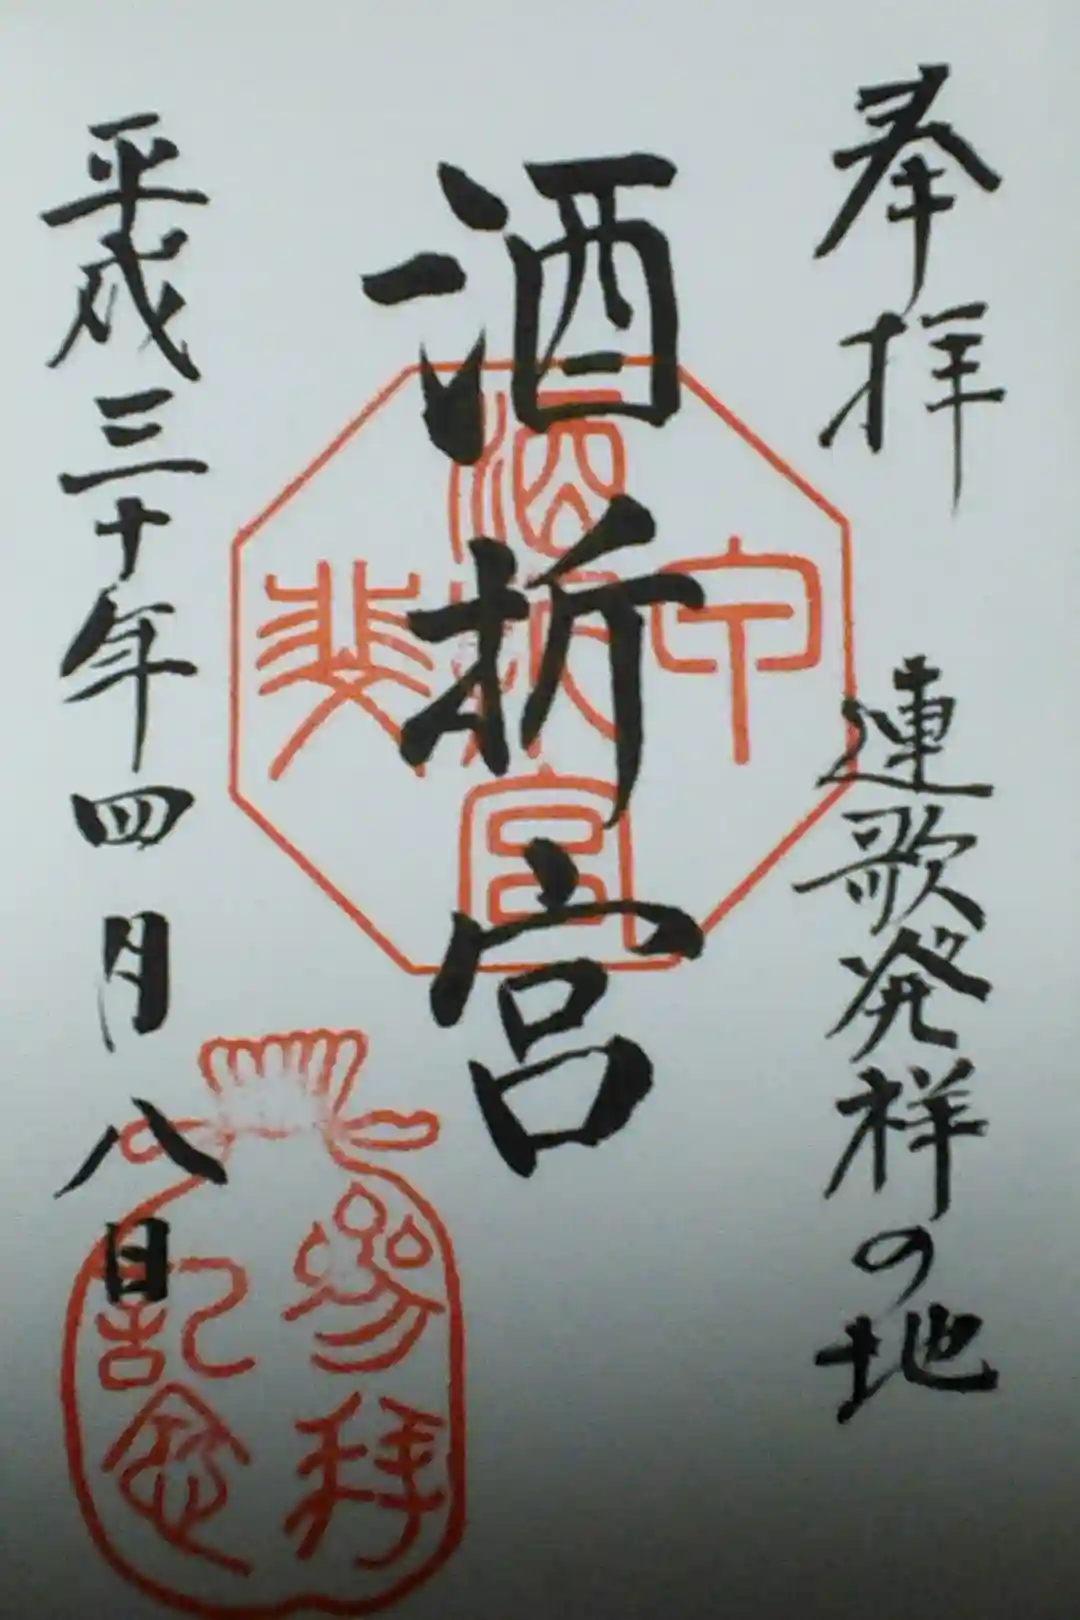 奉拝
連歌発祥の地
酒折宮
平成三十年四月八日
甲斐
酒折宮
参拝
記念